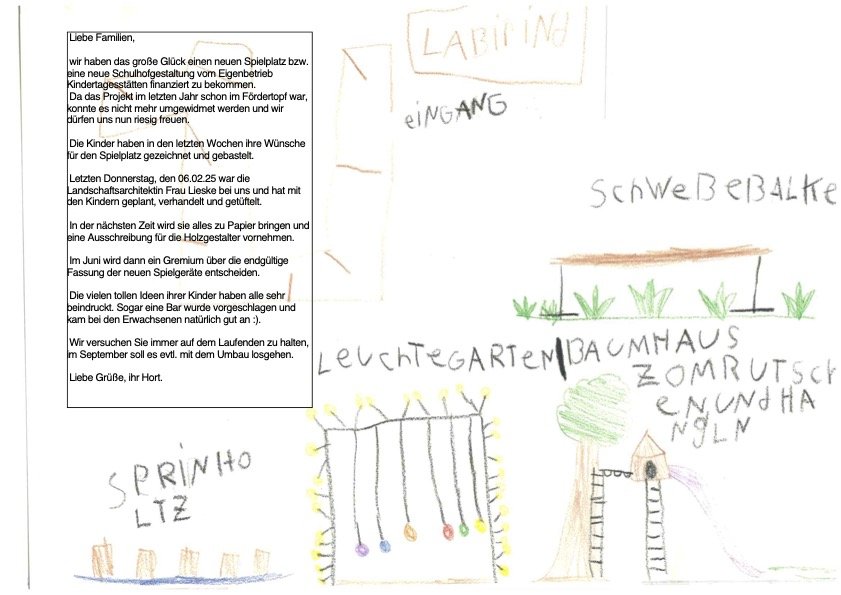 Liebe Familien,
wir haben das große Glück einen neuen Spielplatz bzw.
eine neue Schulhofgestaltung vom Eigenbetrieb
Kindertagesstätten finanziert zu bekommen.
Da das Projekt im letzten Jahr schon im Fördertopf war,
konnte es nicht mehr umgewidmet werden und wir
dürfen uns nun riesig freuen.
Die Kinder haben in den letzten Wochen ihre Wünsche
für den Spielplatz gezeichnet und gebastelt.
Letzten Donnerstag, den 06.02.25 war die
Landschaftsarchitektin Frau Lieske bei uns und hat mit
den Kindern geplant, verhandelt und getüftelt.
In der nächsten Zeit wird sie alles zu Papier bringen und
eine Ausschreibung für die Holzgestalter vornehmen.
Im Juni wird dann ein Gremium über die endgültige
Fassung der neuen Spielgeräte entscheiden.
Die vielen tollen Ideen ihrer Kinder haben alle sehr
beindruckt. Sogar eine Bar wurde vorgeschlagen und
kam bei den Erwachsenen natürlich gut an :).
Wir versuchen Sie immer auf dem Laufenden zu halten,
im September soll es evtl. mit dem Umbau losgehen.
Liebe Grüße, ihr Hort.
LABIRINd
eiNGANG
SchWeBEBALKe
LeuchTEGARTEN
BAUMHAUS
ZOMRUTSCH
eN UNdHA
NgLN
SPRiNHO
LTZ